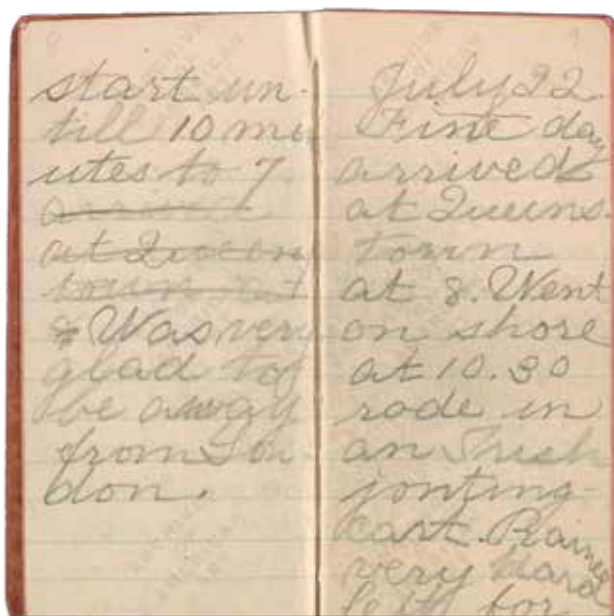 start un-
till 10 min
utes to 7
arrived
at Queens
town at
8 Was very
glad to
be away
from Lon-
don.
July 22
Fine day
arrived
at Queens
town
at 8. Went
on shore
at 10.30
rode in
an Irish
jonting
cart. Rained
very hard
left for